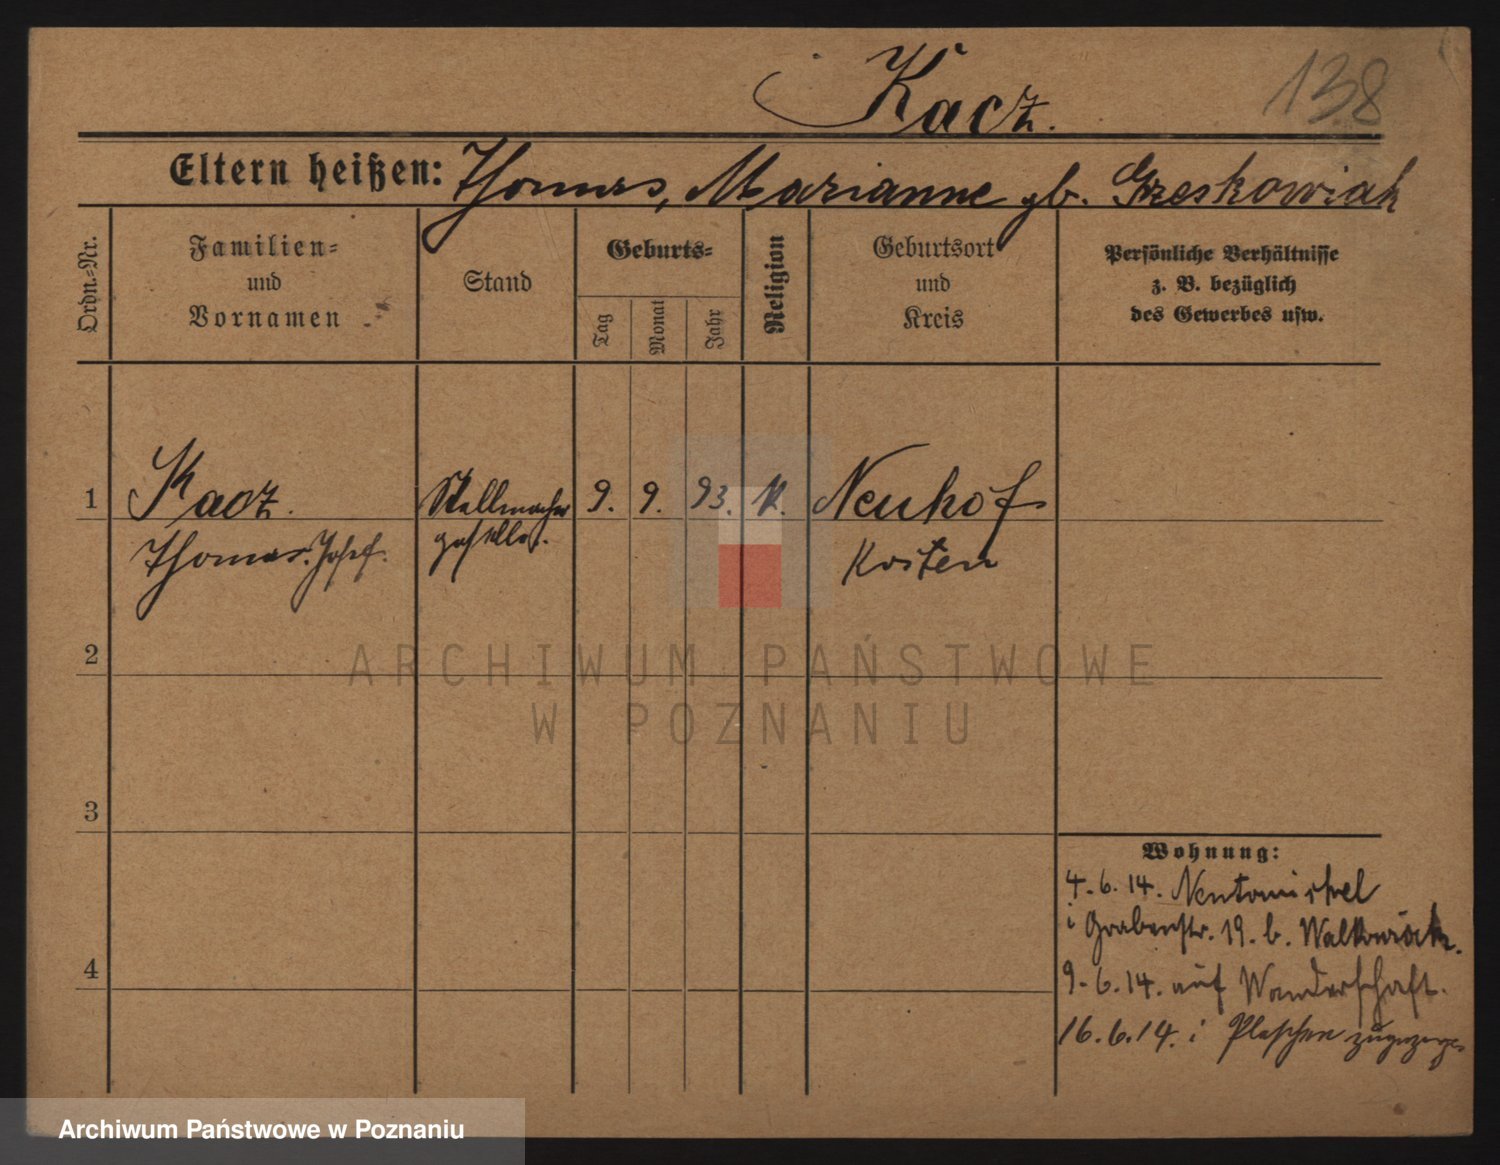 Kacz.
138
Eltern heißen: Thomas, Marianne gb. Grzeskowiak
Ordn.-Nr.
Familien-
und
Vornamen
Stand
Geburts-
Tag
Monat
Jahr
Religion
Geburtsort
und
Kreis
Persönliche Verhältnisse
z. B. bezüglich
des Gewerbes usw.
1
Kacz.
Thomas. Josef.
Stellmacher
geselle.
9. 9. 93. k.
Neuhof
Kosten
2
3
4
Wohnung:
4.6.14. Neutomischel
i Grabenstr. 19. b.
9.6.14. auf Wanderschaft.
16.6.14. i Pleschen zugezogen
ARCHIWUM PAŃSTWOWE
W POZNANIU
Archiwum Państwowe w Poznaniu